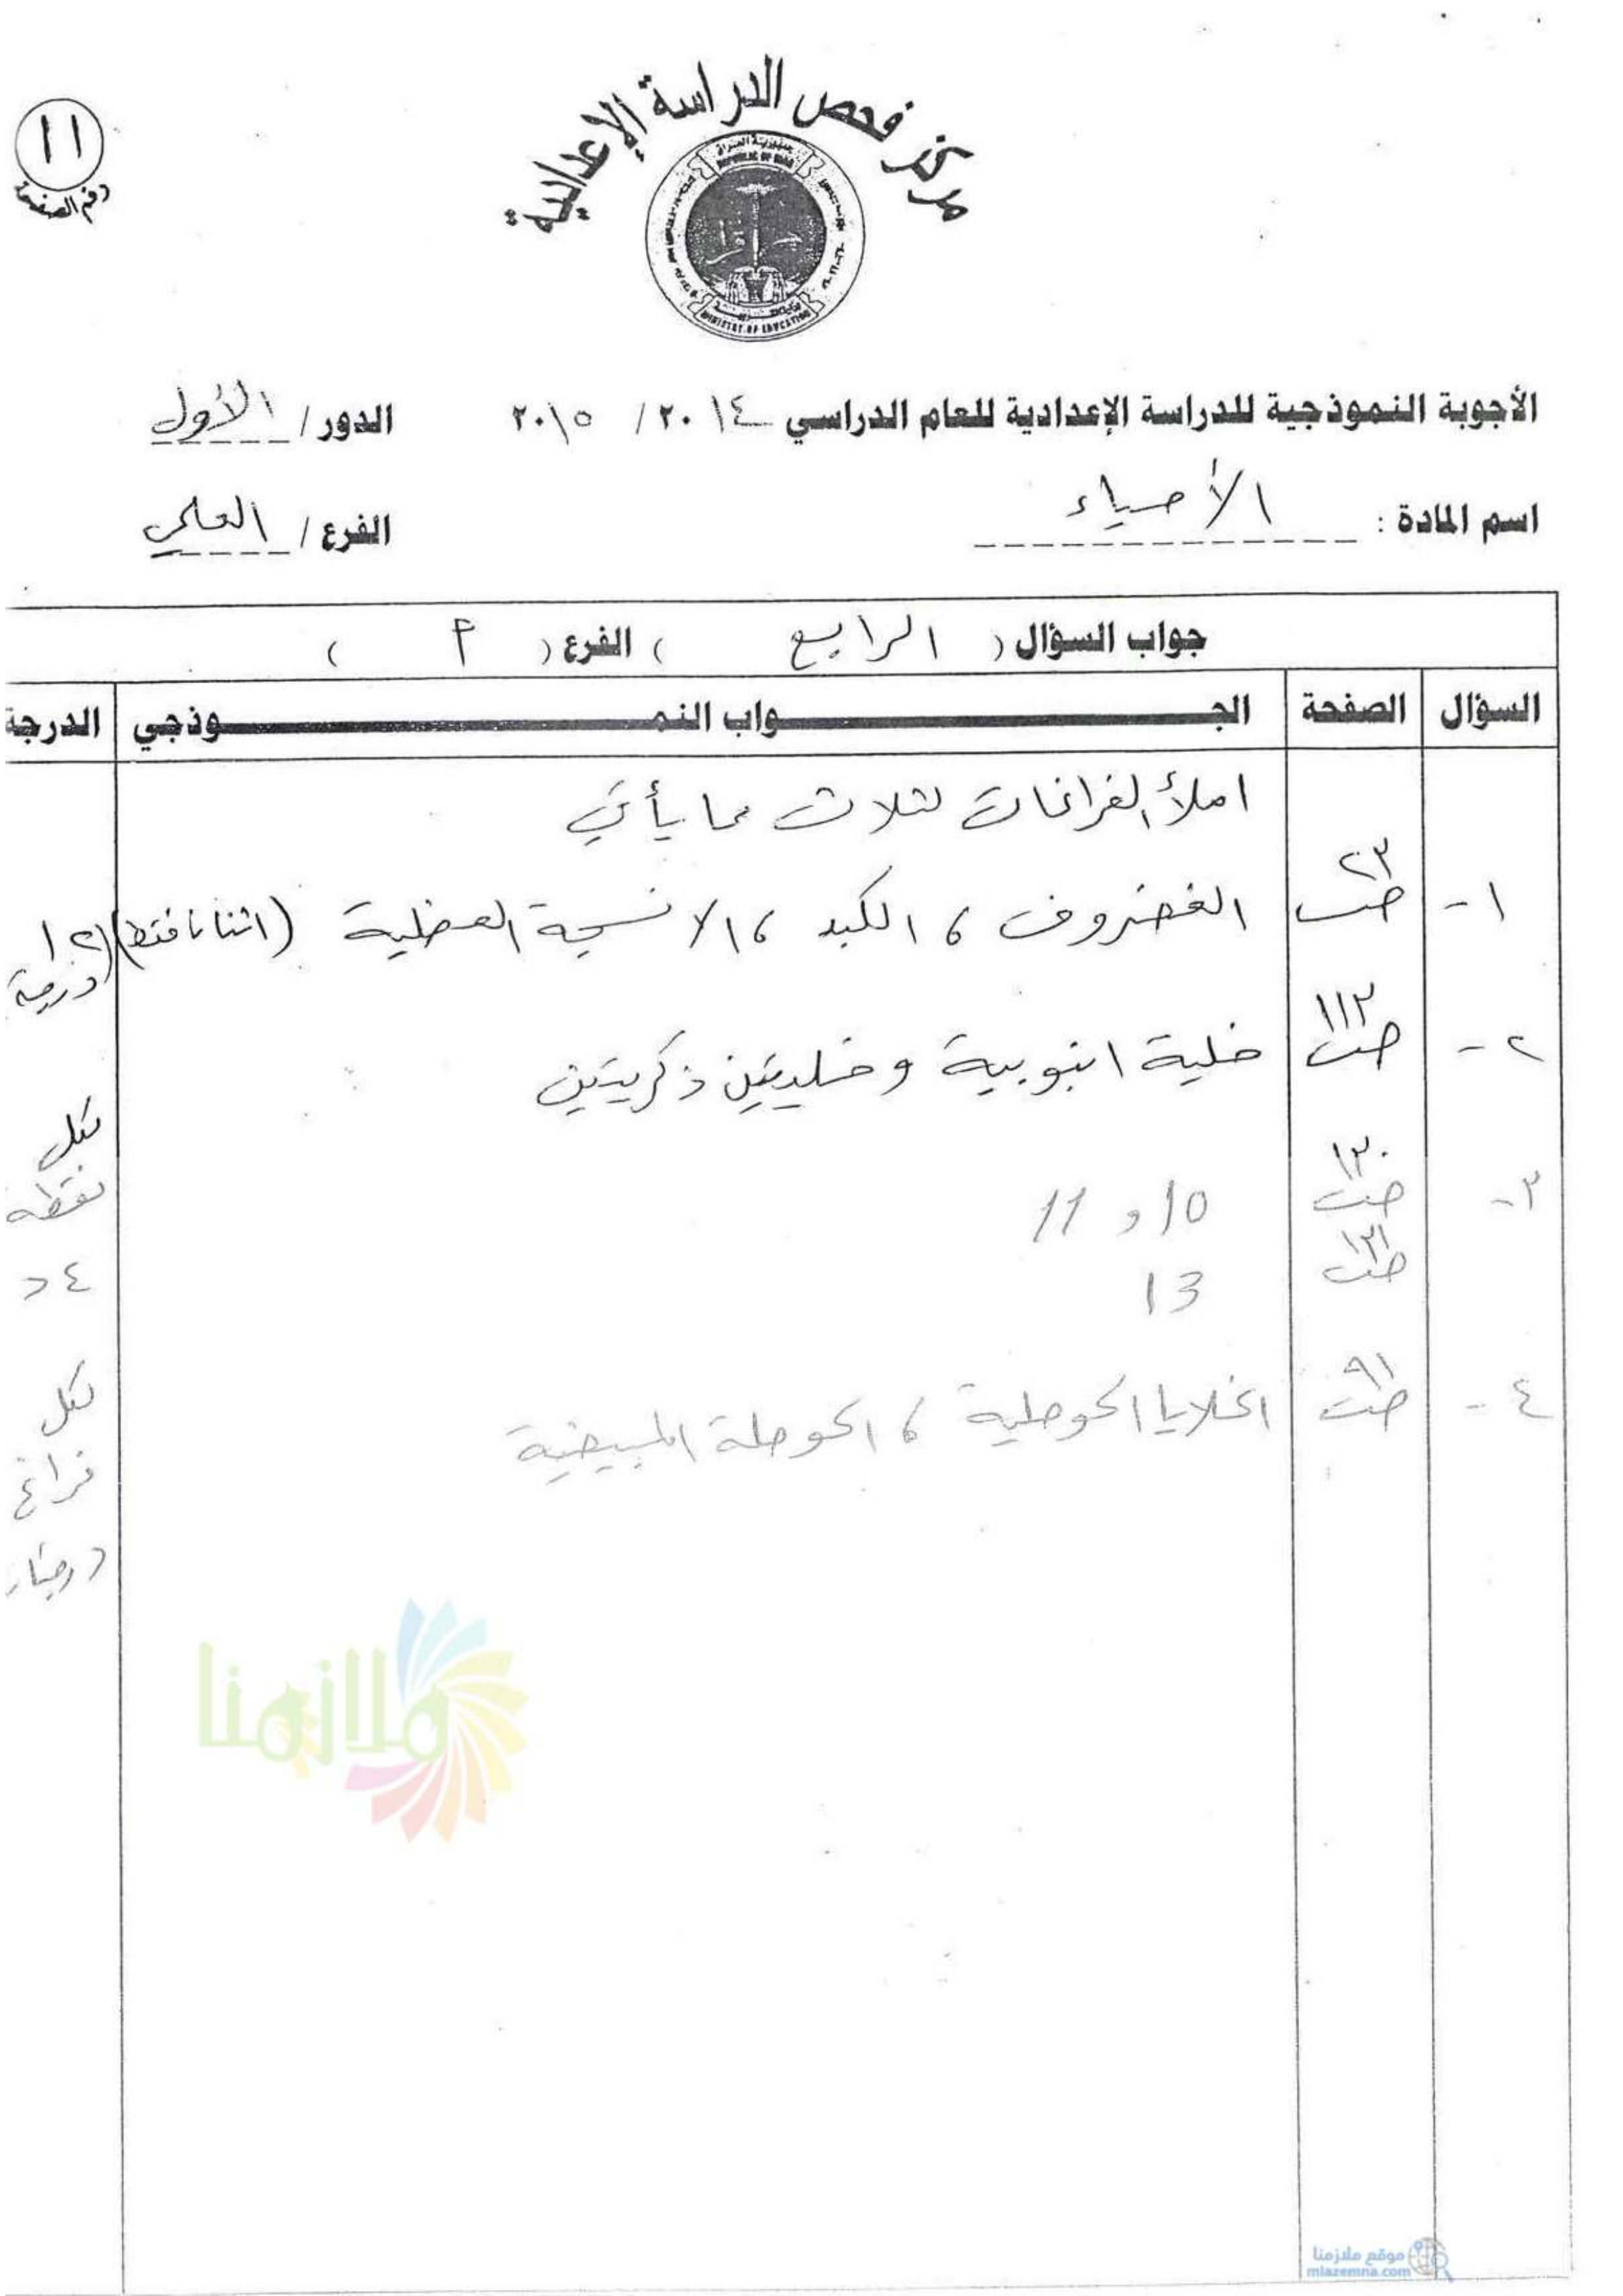 ١١
رقم الصفحة
مركز فحص الدراسة الإعدادية
جمهورية العراق
REPUBLIC OF IRAQ
MINISTRY OF EDUCATION
الأجوبة النموذجية للدراسة الإعدادية للعام الدراسي ٢٠١٤ / ٢٠١٥ الدور / الأول
اسم المادة : الأحياء الفرع / العلمي
جواب السؤال ( الرابع ) الفرع ( أ )
السؤال الصفحة الجـــواب النمـــوذجي الدرجة
املأ الفراغات لثلاث مما يأتي
١- ص٢٣ الغضروف ، الكبد ، الانسجة العضلية (اثنان فقط) (١٢ درجة
٢- ص١١٣ خلية انبوبية وخليتين ذكريتين
لكل نقطة ٤ د
٣- ص١٣٠ 10 و 11
ص١٣١ 13
٤- ص٩١ الخلايا الحوصلية ، الحوصلة المبيضية
لكل فراغ درجتان
ملازمنا
موقع ملازمنا
mlazemna.com